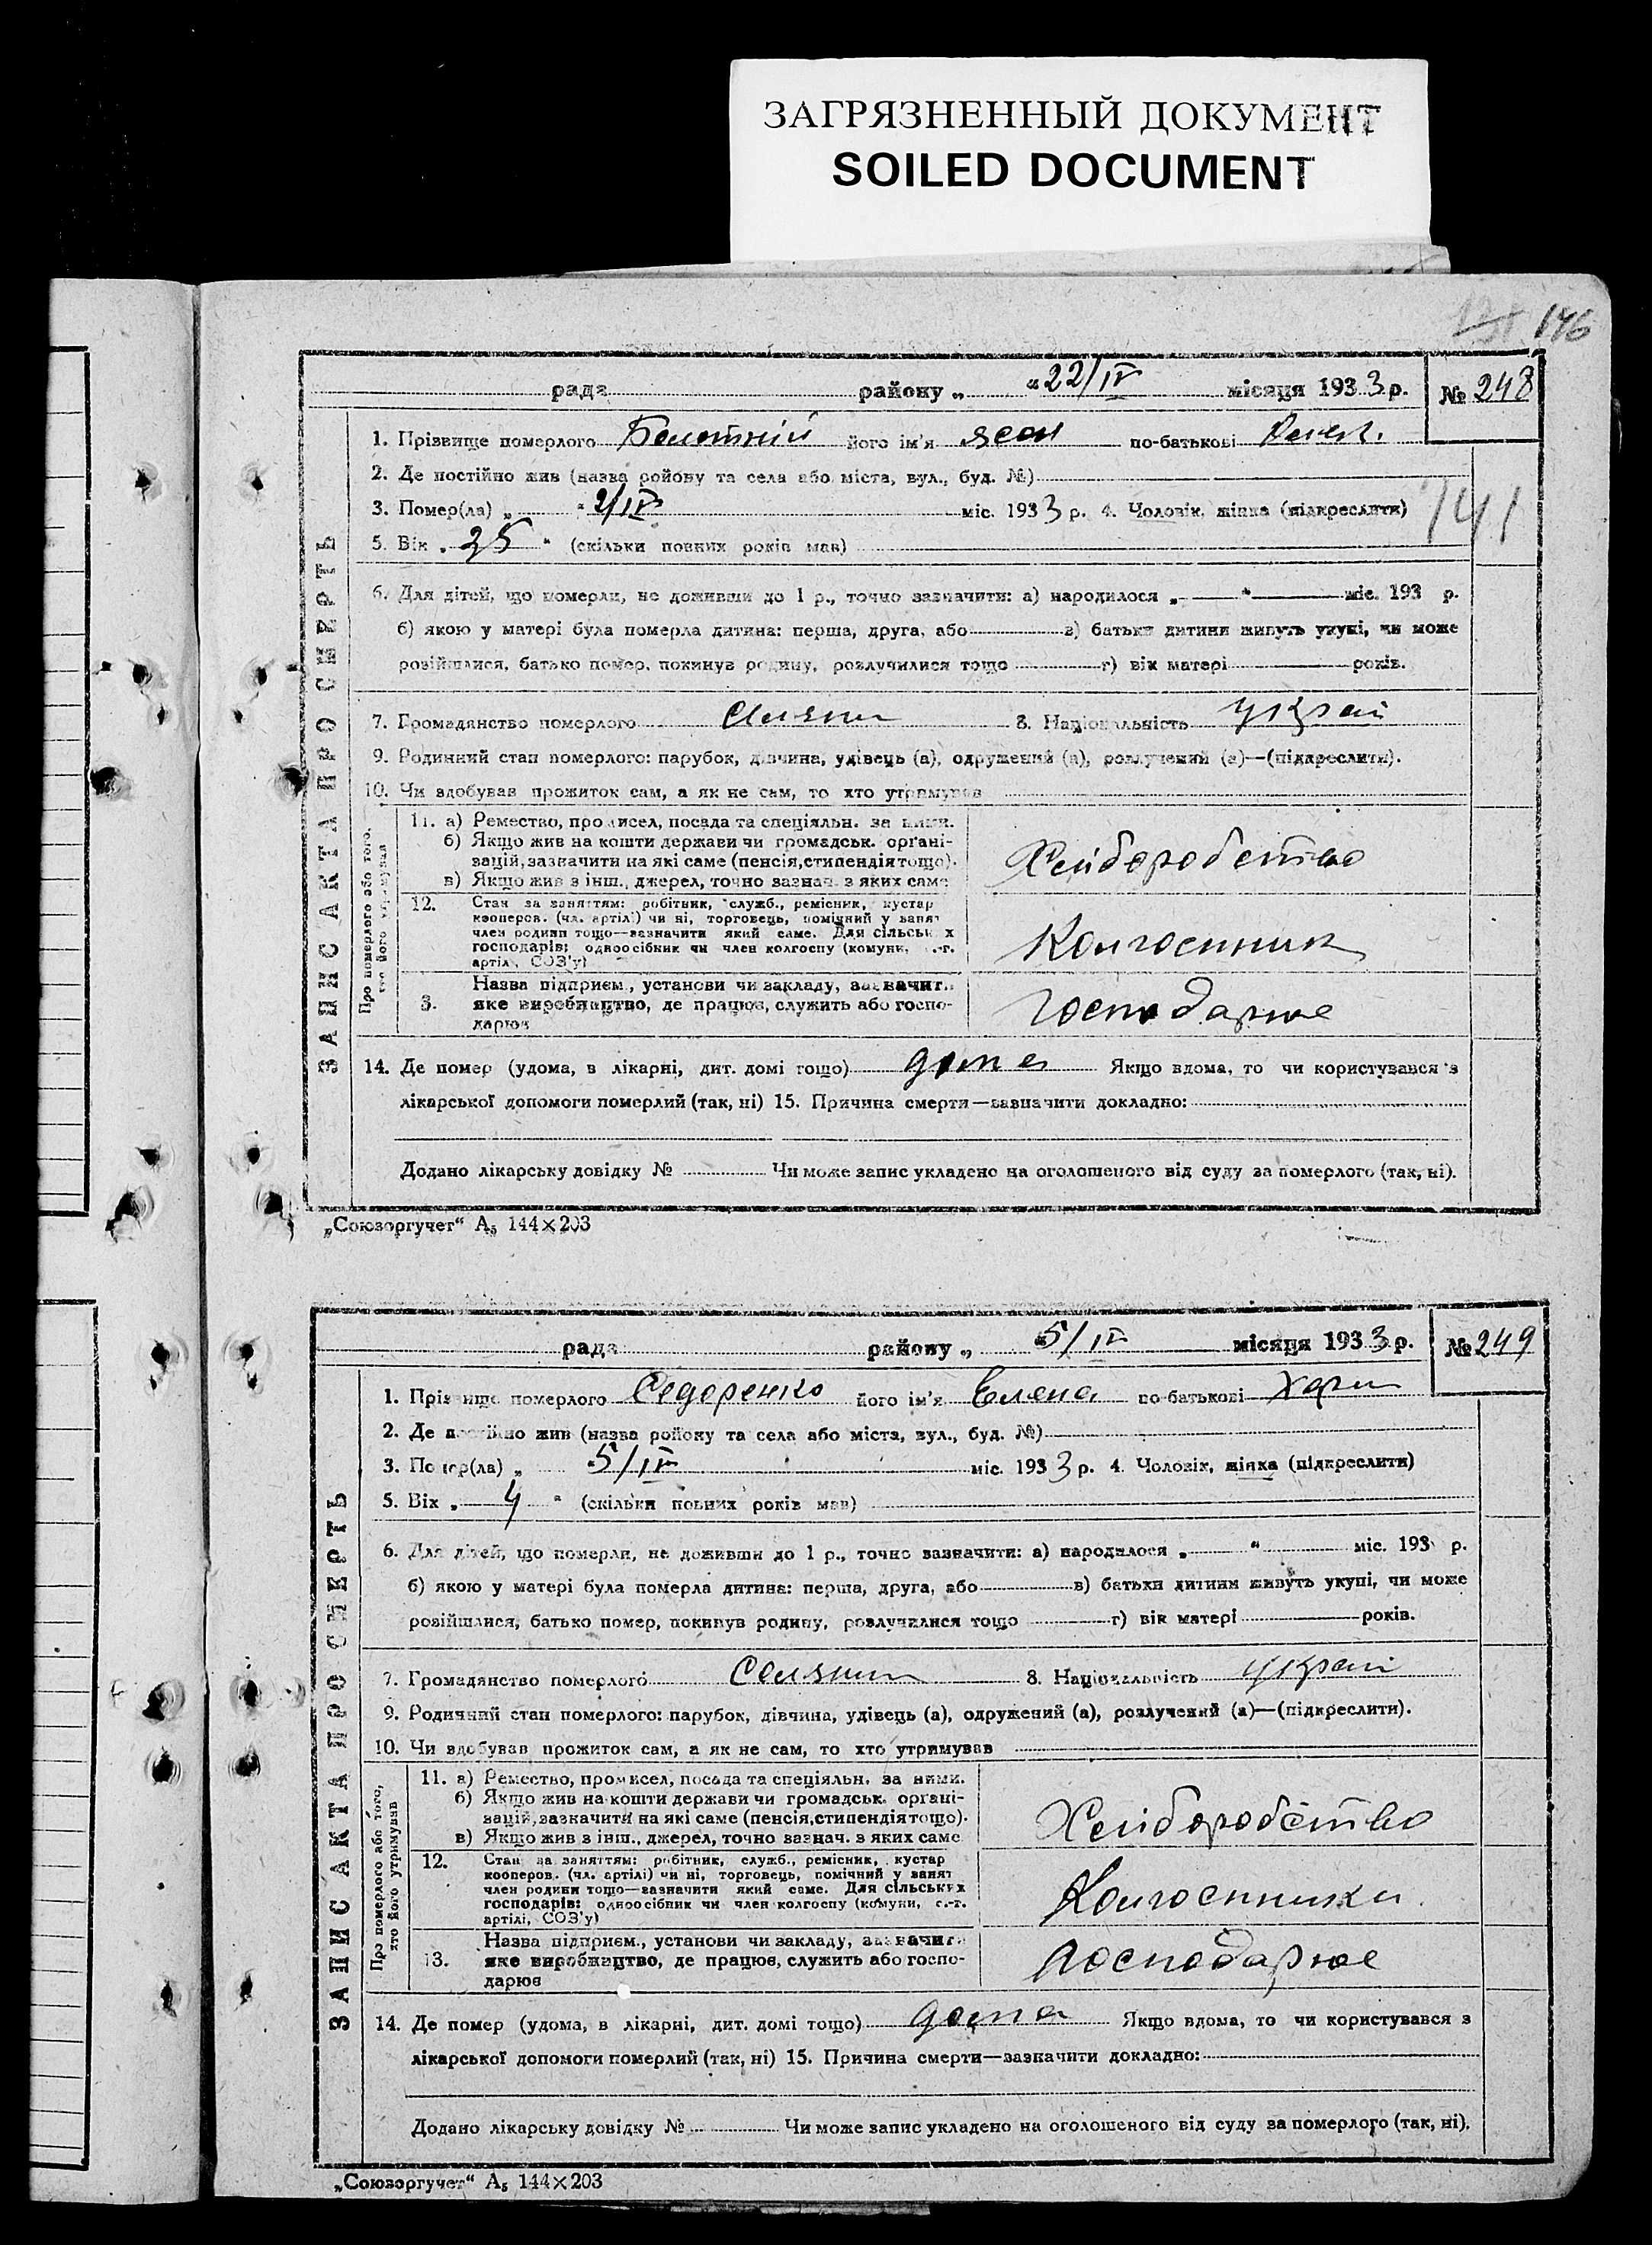 ЗАГРЯЗНЕННЫЙ ДОКУМЕНТ
SOILED DOCUMENT
146
рада району „ “ 22/IV місяця 1933 р. № 248
1. Прізвище померлого його ім'я по-батькові
2. Де постійно жив (назва ройону та села або міста, вул., буд. №)
3. Помер(ла) „ “ 2/IV міс. 1933 р. 4. Чоловік, жінка (підкреслити)
141
5. Вік „ 25 “ (скільки повних років мав)
6. Для дітей, що померли, не доживши до 1 р., точно зазначити: а) народилося „ “ міс. 193 р.
б) якою у матері була померла дитина: перша, друга, або в) батьки дитини живуть укупі, чи може
розійшлися, батько помер, покинув родину, розлучилися тощо г) вік матері років.
7. Громадянство померлого 8. Національність Украй
9. Родинний стан померлого: парубок, дівчина, удівець (а), одружений (а), розлучений (а)—(підкреслити).
10. Чи здобував прожиток сам, а як не сам, то хто утримував
ЗАПИС АКТА ПРО СМЕРТЬ
Про померлого або того,
хто його утримував
11. а) Ремество, промисел, посада та спеціяльн. за ними.
б) Якщо жив на кошти держави чи громадськ. орґані-
зацій, зазначити на які саме (пенсія, стипендія тощо).
в) Якщо жив з інш., джерел, точно зазнач. з яких саме
Хліборобство
12. Стан за заняттям: робітник, служб., ремісник, кустар
кооперов. (чл. артілі) чи ні, торговець, помічний у занят
член родини тощо—зазначити який саме. Для сільських
господарів: одноосібник чи член колгоспу (комуни, с.-г.
артілі, СОЗ'у)
Колгоспник
3. Назва підприєм., установи чи закладу, зазначити
яке виробництво, де працює, служить або госпо-
дарює
Господарює
14. Де помер (удома, в лікарні, дит. домі тощо) дома Якщо вдома, то чи користувався з
лікарської допомоги померлий (так, ні) 15. Причина смерти—зазначити докладно:
Додано лікарську довідку № Чи може запис укладено на оголошеного від суду за померлого (так, ні).
„Союзоргучет“ А₅ 144×203
рада району „ “ 5/IV місяця 1933 р. № 249
1. Прізвище померлого Федоренко його ім'я Елена по-батькові Хари
2. Де постійно жив (назва ройону та села або міста, вул., буд. №)
3. Помер(ла) „ “ 5/IV міс. 1933 р. 4. Чоловік, жінка (підкреслити)
5. Вік „ 4 “ (скільки повних років мав)
6. Для дітей, що померли, не доживши до 1 р., точно зазначити: а) народилося „ “ міс. 193 р.
б) якою у матері була померла дитина: перша, друга, або в) батьки дитини живуть укупі, чи може
розійшлися, батько помер, покинув родину, розлучилися тощо г) вік матері років.
7. Громадянство померлого 8. Національність Украй
9. Родинний стан померлого: парубок, дівчина, удівець (а), одружений (а), розлучений (а)—(підкреслити).
10. Чи здобував прожиток сам, а як не сам, то хто утримував
ЗАПИС АКТА ПРО СМЕРТЬ
Про померлого або того,
хто його утримував
11. а) Ремество, промисел, посада та спеціяльн. за ними.
б) Якщо жив на кошти держави чи громадськ. орґані-
зацій, зазначити на які саме (пенсія, стипендія тощо).
в) Якщо жив з інш., джерел, точно зазнач. з яких саме
Хліборобство
12. Стан за заняттям: робітник, служб., ремісник, кустар
кооперов. (чл. артілі) чи ні, торговець, помічний у занят
член родини тощо—зазначити який саме. Для сільських
господарів: одноосібник чи член колгоспу (комуни, с.-г.
артілі, СОЗ'у)
Колгоспники
13. Назва підприєм., установи чи закладу, зазначити
яке виробництво, де працює, служить або госпо-
дарює
Господарює
14. Де помер (удома, в лікарні, дит. домі тощо) дома Якщо вдома, то чи користувався з
лікарської допомоги померлий (так, ні) 15. Причина смерти—зазначити докладно:
Додано лікарську довідку № Чи може запис укладено на оголошеного від суду за померлого (так, ні).
„Союзоргучет“ А₅ 144×203